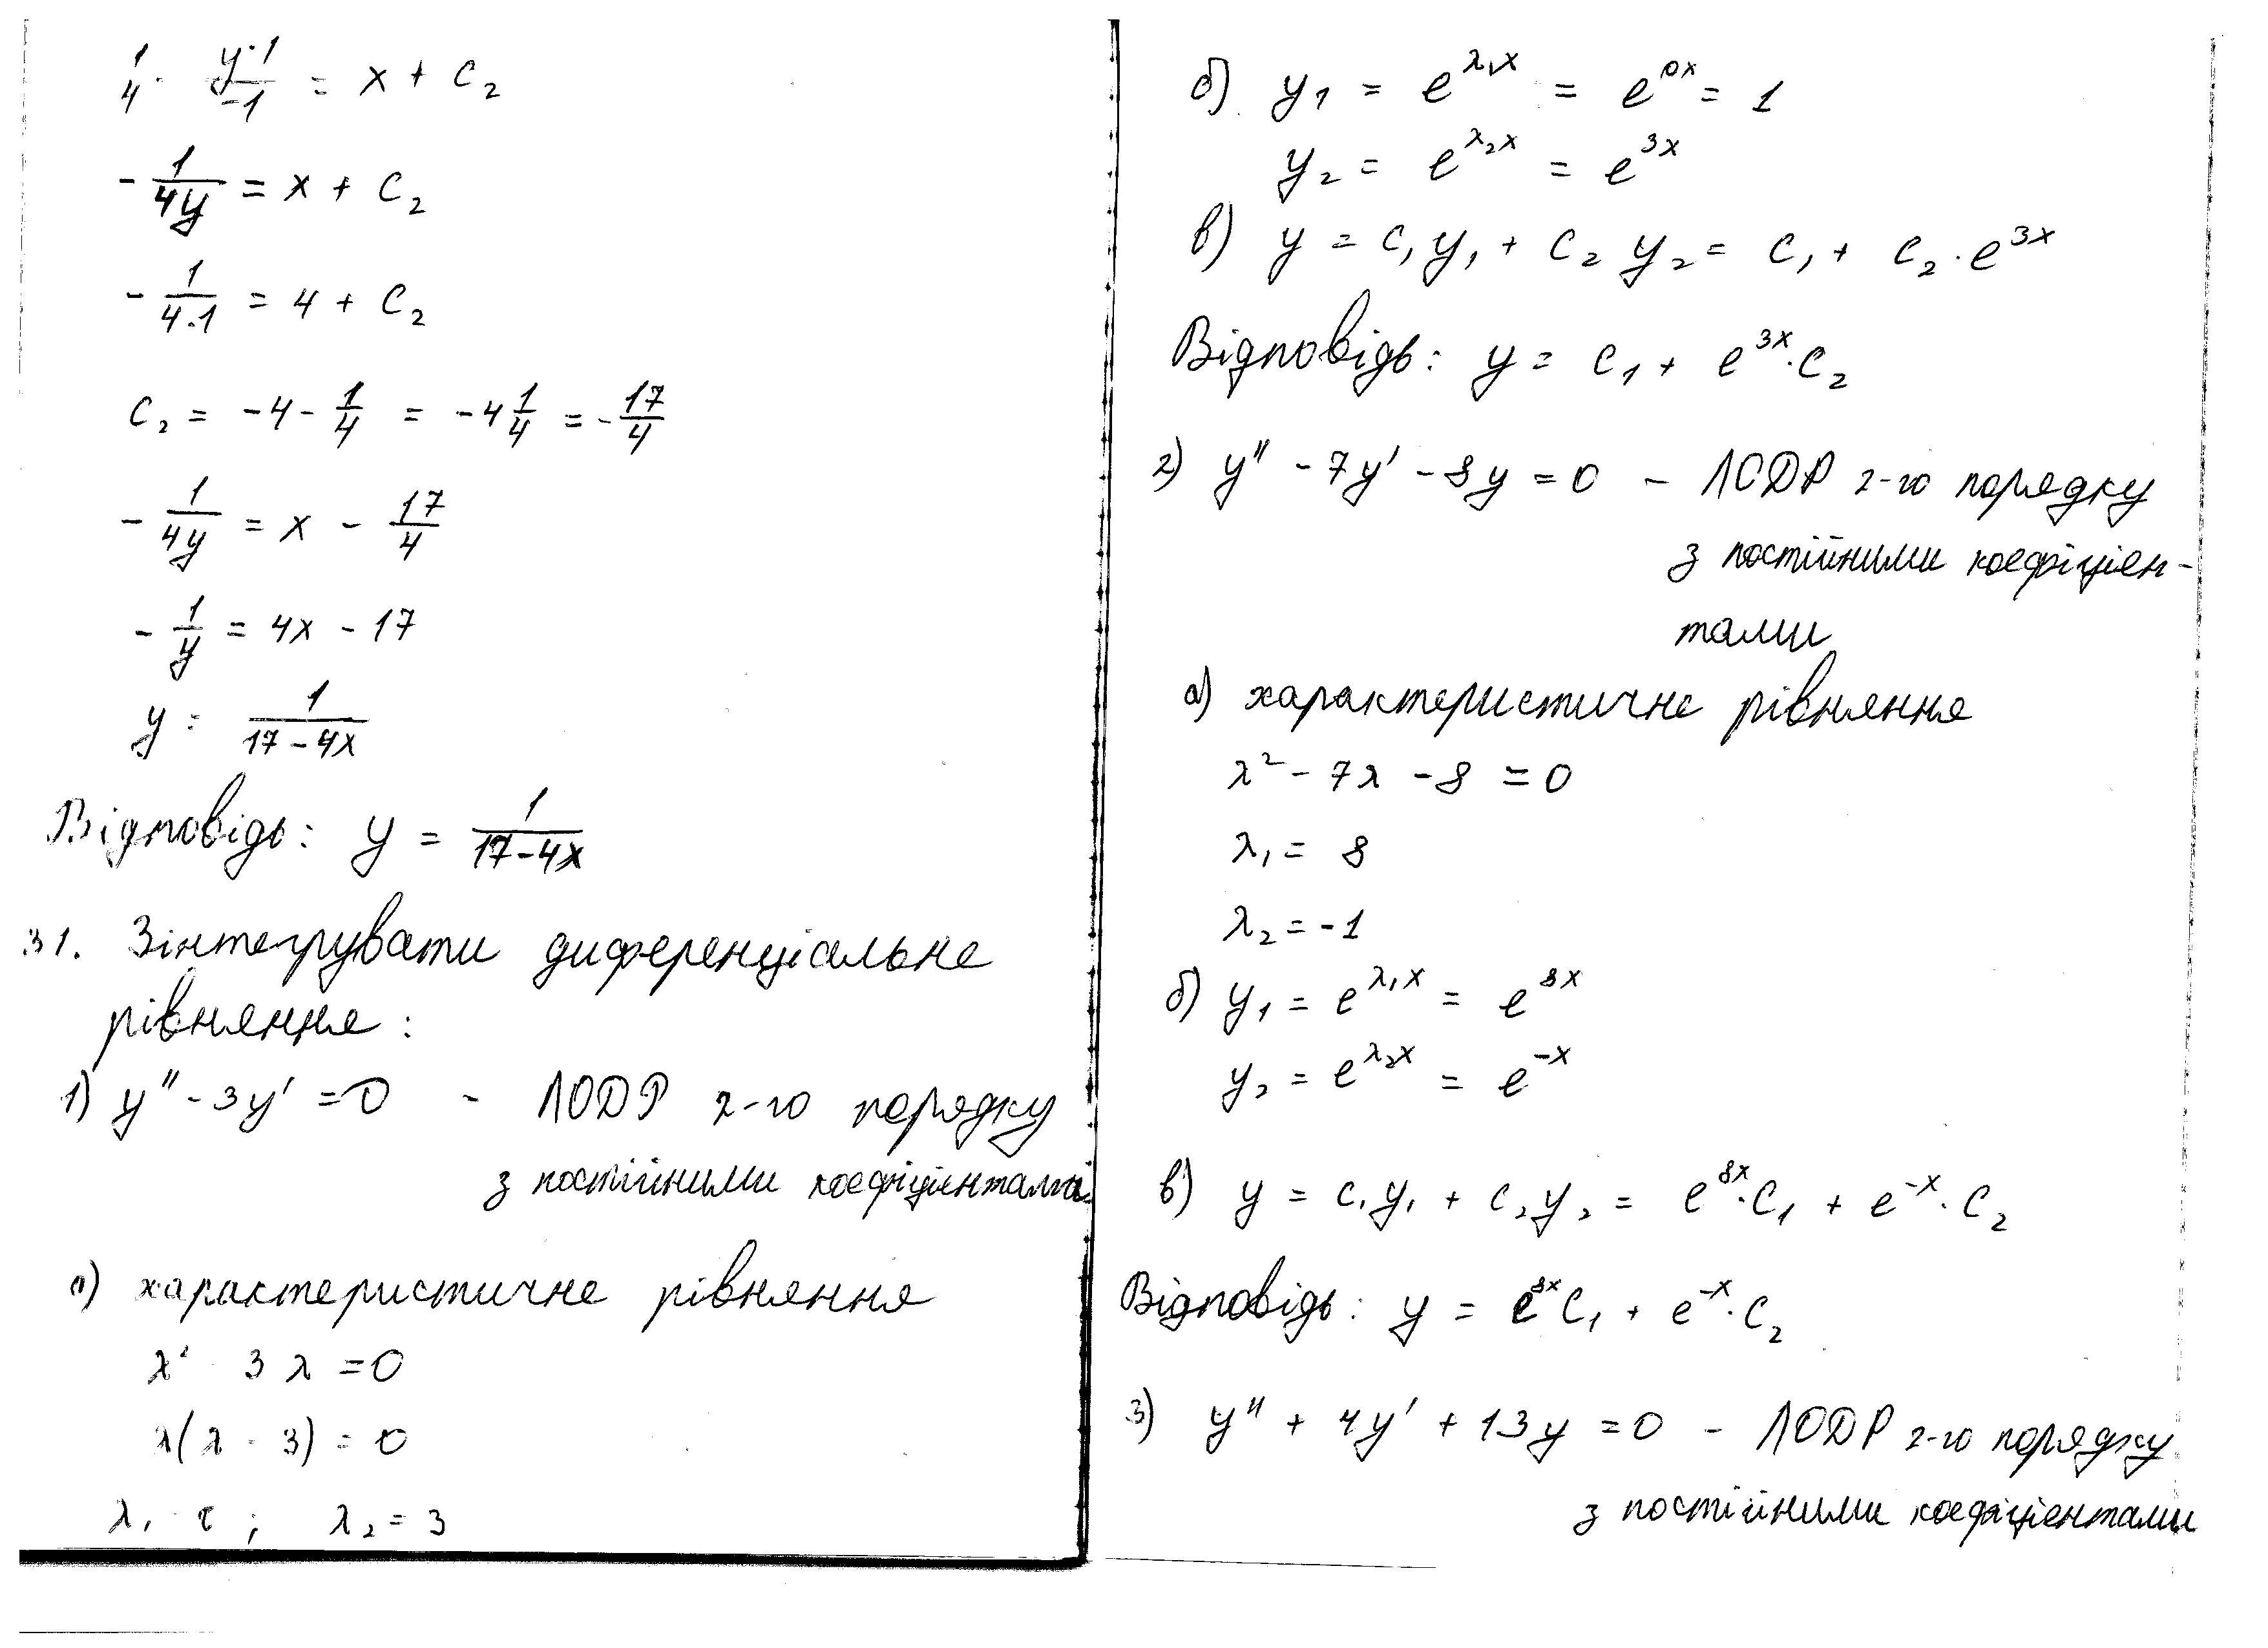 1/4 · y⁻¹/-1 = x + c₂
- 1/4y = x + c₂
- 1/4·1 = 4 + c₂
c₂ = -4 - 1/4 = -4 1/4 = - 17/4
- 1/4y = x - 17/4
- 1/y = 4x - 17
y = 1/17-4x
Відповідь: y = 1/17-4x
31. Зінтегрувати диференціальне
рівняння:
1) y'' - 3y' = 0 - ЛОДР 2-го порядку
з постійними коефіцієнтами
а) характеристичне рівняння
λ² - 3λ = 0
λ(λ - 3) = 0
λ₁ = 0; λ₂ = 3
б) y₁ = e^λ₁x = e^0x = 1
y₂ = e^λ₂x = e^3x
в) y = c₁y₁ + c₂y₂ = c₁ + c₂·e^3x
Відповідь: y = c₁ + e^3x·c₂
2) y'' - 7y' - 8y = 0 - ЛОДР 2-го порядку
з постійними коефіцієн-
тами
а) характеристичне рівняння
λ² - 7λ - 8 = 0
λ₁ = 8
λ₂ = -1
б) y₁ = e^λ₁x = e^8x
y₂ = e^λ₂x = e^-x
в) y = c₁y₁ + c₂y₂ = e^8x·c₁ + e^-x·c₂
Відповідь: y = e^8x c₁ + e^-x·c₂
3) y'' + 4y' + 13y = 0 - ЛОДР 2-го порядку
з постійними коефіцієнтами